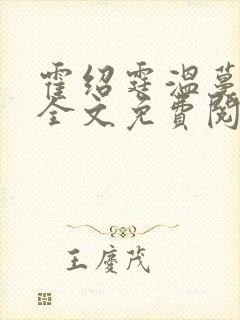 霍绍霆温蔓
全文免费阅
王庆茂